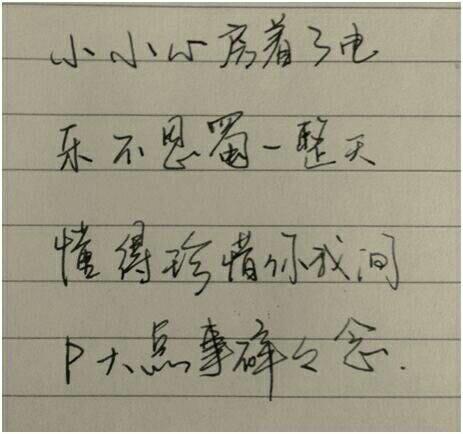 小小心房着了电
乐不思蜀一整天
懂得珍惜你我间
P大点事碎々念.